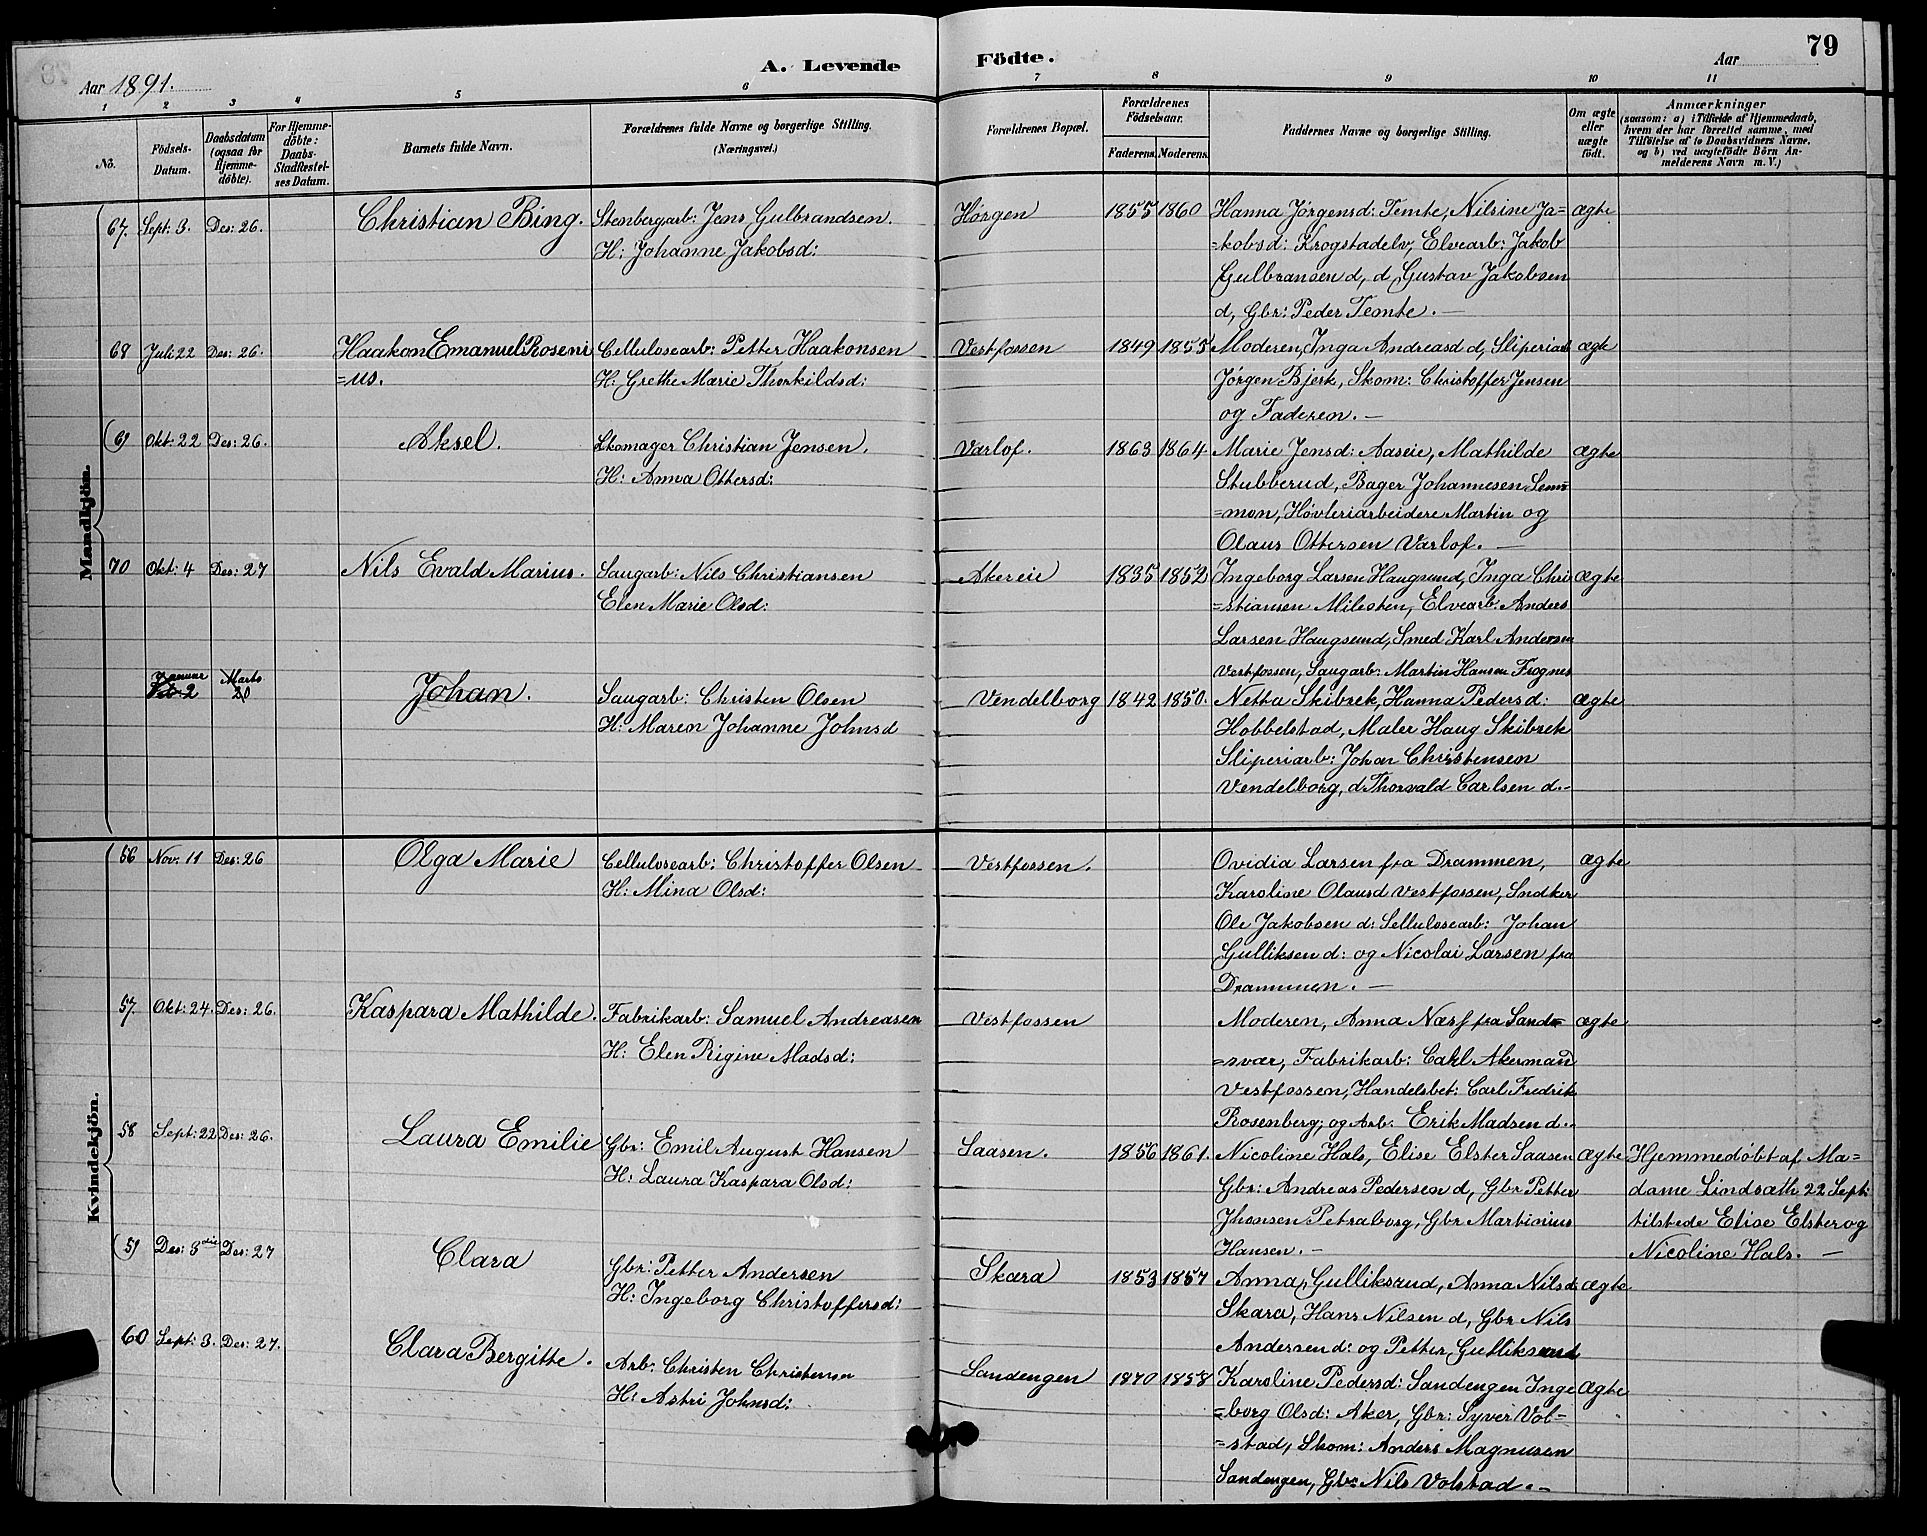 Aar 1891.
A. Levende Födte.
Aar
79
1 2 3 4 5 6 7 8 9 10 11
No.
Födsels-Datum.
Daabsdatum (ogsaa for Hjemme-döbte).
For Hjemme-döbte: Daabs-Stadfæstel-ses Datum.
Barnets fulde Navn.
Forældrenes fulde Navne og borgerlige Stilling. (Næringsvei.)
Forældrenes Bopæl.
Forældrenes Födselsaar.
Faderens. Moderens.
Faddernes Navne og borgerlige Stilling.
Om ægte eller uægte födt.
Anmærkninger
(saasom: a) i Tilfælde af Hjemmedaab,
hvem der har forrettet samme, med
Tilföielse af to Daabsvidners Navne,
og b) ved uægtefödte Börn An-
melderens Navn m. V.)
Mandkjön.
67. Sept: 3. Des: 26. Christian Bing. Stenbergarb: Jens Gulbrandsen. Hørgen 1855 1860 Hanna Jørgensd: Temte, Nilsine Ja= ægte
H: Johanne Jakobsd: =kobsd: Krogstadelv, Elvearb: Jakob
Gulbransen d, d Gustav Jakobsen
d, Gbr: Peder Temte. —
68 Juli 22 Des: 26. Haakon Emanuel Roseni Cellulosearb: Petter Haakonsen Vestfossen 1849 1855 Moderen, Inga Andreasd d, Sliperiarb ægte
=us. H: Grethe Marie Thorkildsd: Jørgen Bjerk, Skom: Christoffer Jensen
og Faderen. —
69 Okt: 22 Des: 26. Aksel. Skomager Christian Jensen. Varlof. 1863 1864 Marie Jensd: Aaseie, Mathilde ægte
H: Anna Ottersd: Stubberud, Bager Johannesen Sem=
=mon, Høvleriarbeidere Martin og
Olaus Ottersen Varlof. —
70 Okt: 4 Des: 27 Nils Evald Marius. Saugarb: Nils Christiansen Akereie 1835 1852 Ingeborg Larsen Haugsund, Inga Chri ægte
Elen Marie Olsd: =stiansen Milesten, Elvearb: Anders
Larsen Haugsund, Smed Karl Andersen
Vestfossen, Saugarb: Martin Hansen Frognes
Januar 2 Marts 20 Johan. Saugarb: Christen Olsen Vendelborg 1842 1850. Netta Skibrek, Hanna Pedersd: ægte
H: Maren Johanne Johnsd Hobbelstad, Maler Haug Skibrek
Sliperiarb: Johan Christensen
Vendelborg, d Thorvald Carlsen d.-
Kvindekjön.
56 Nov. 11 Des: 26 Olga Marie Cellulosearb: Christoffer Olsen Vestfossen. Ovidia Larsen fra Drammen, ægte
H: Mina Olsd: Karoline Olausd Vestfossen, Sndker
Ole Jakobsen d: Sellulosearb: Johan
Gulliksen d: og Nicolai Larsen fra
Drammen. —
57. Okt: 24. Des: 26. Kaspara Mathilde. Fabrikarb: Samuel Andreasen Vestfossen Moderen, Anna Næss fra Sand= ægte
H: Elen Regine Madsd: =svær, Fabrikarb: Carl Akerman
Vestfossen, Handelsbet: Carl Fredrik
Rosenberg, og Arb. Erik Madsen d..
58 Sept: 22 Des: 26. Laura Emilie Gbr: Emil August Hansen Saasen. 1856 1861. Nicoline Hals, Elise Elster Saasen ægte Hjemmedøbt af Ma=
H: Laura Kaspara Olsd: Gbr: Andreas Pedersen d, Gbr Petter dame Lindsæth 22 Sept:
Jhansen Petraborg, Gbr Martinius tilstede Elise Elster og
Hansen. — Nicoline Hals. —
59 Des: 3die Des: 27 Clara Gbr: Petter Andersen Skara 1853 1857 Anna Gulliksrud, Anna Nilsd ægte
H: Ingeborg Christoffersd: Skara, Hans Nilsen d, Gbr Nils
Andersen d: og Petter Gulliksrud
60 Sept: 3. Des: 27. Clara Bergitte. Arb: Christen Christensen Sandengen 1870 1858 Karoline Pedersd: Sandengen Inge ægte
H: Astri Johnsd: =borg Olsd: Aker, Gbr: Syver Vol=
=stad, Skom: Anders Magnusen
Sandengen, Gbr: Nils Volstad. —